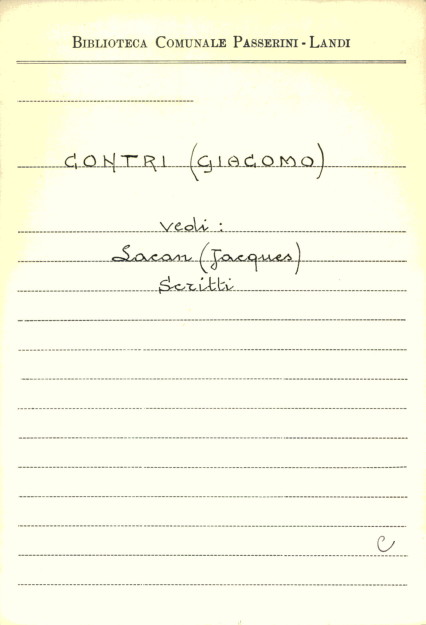 BIBLIOTECA COMUNALE PASSERINI - LANDI
CONTRI (GIACOMO)
vedi :
Lacan (Jacques)
Scritti
C